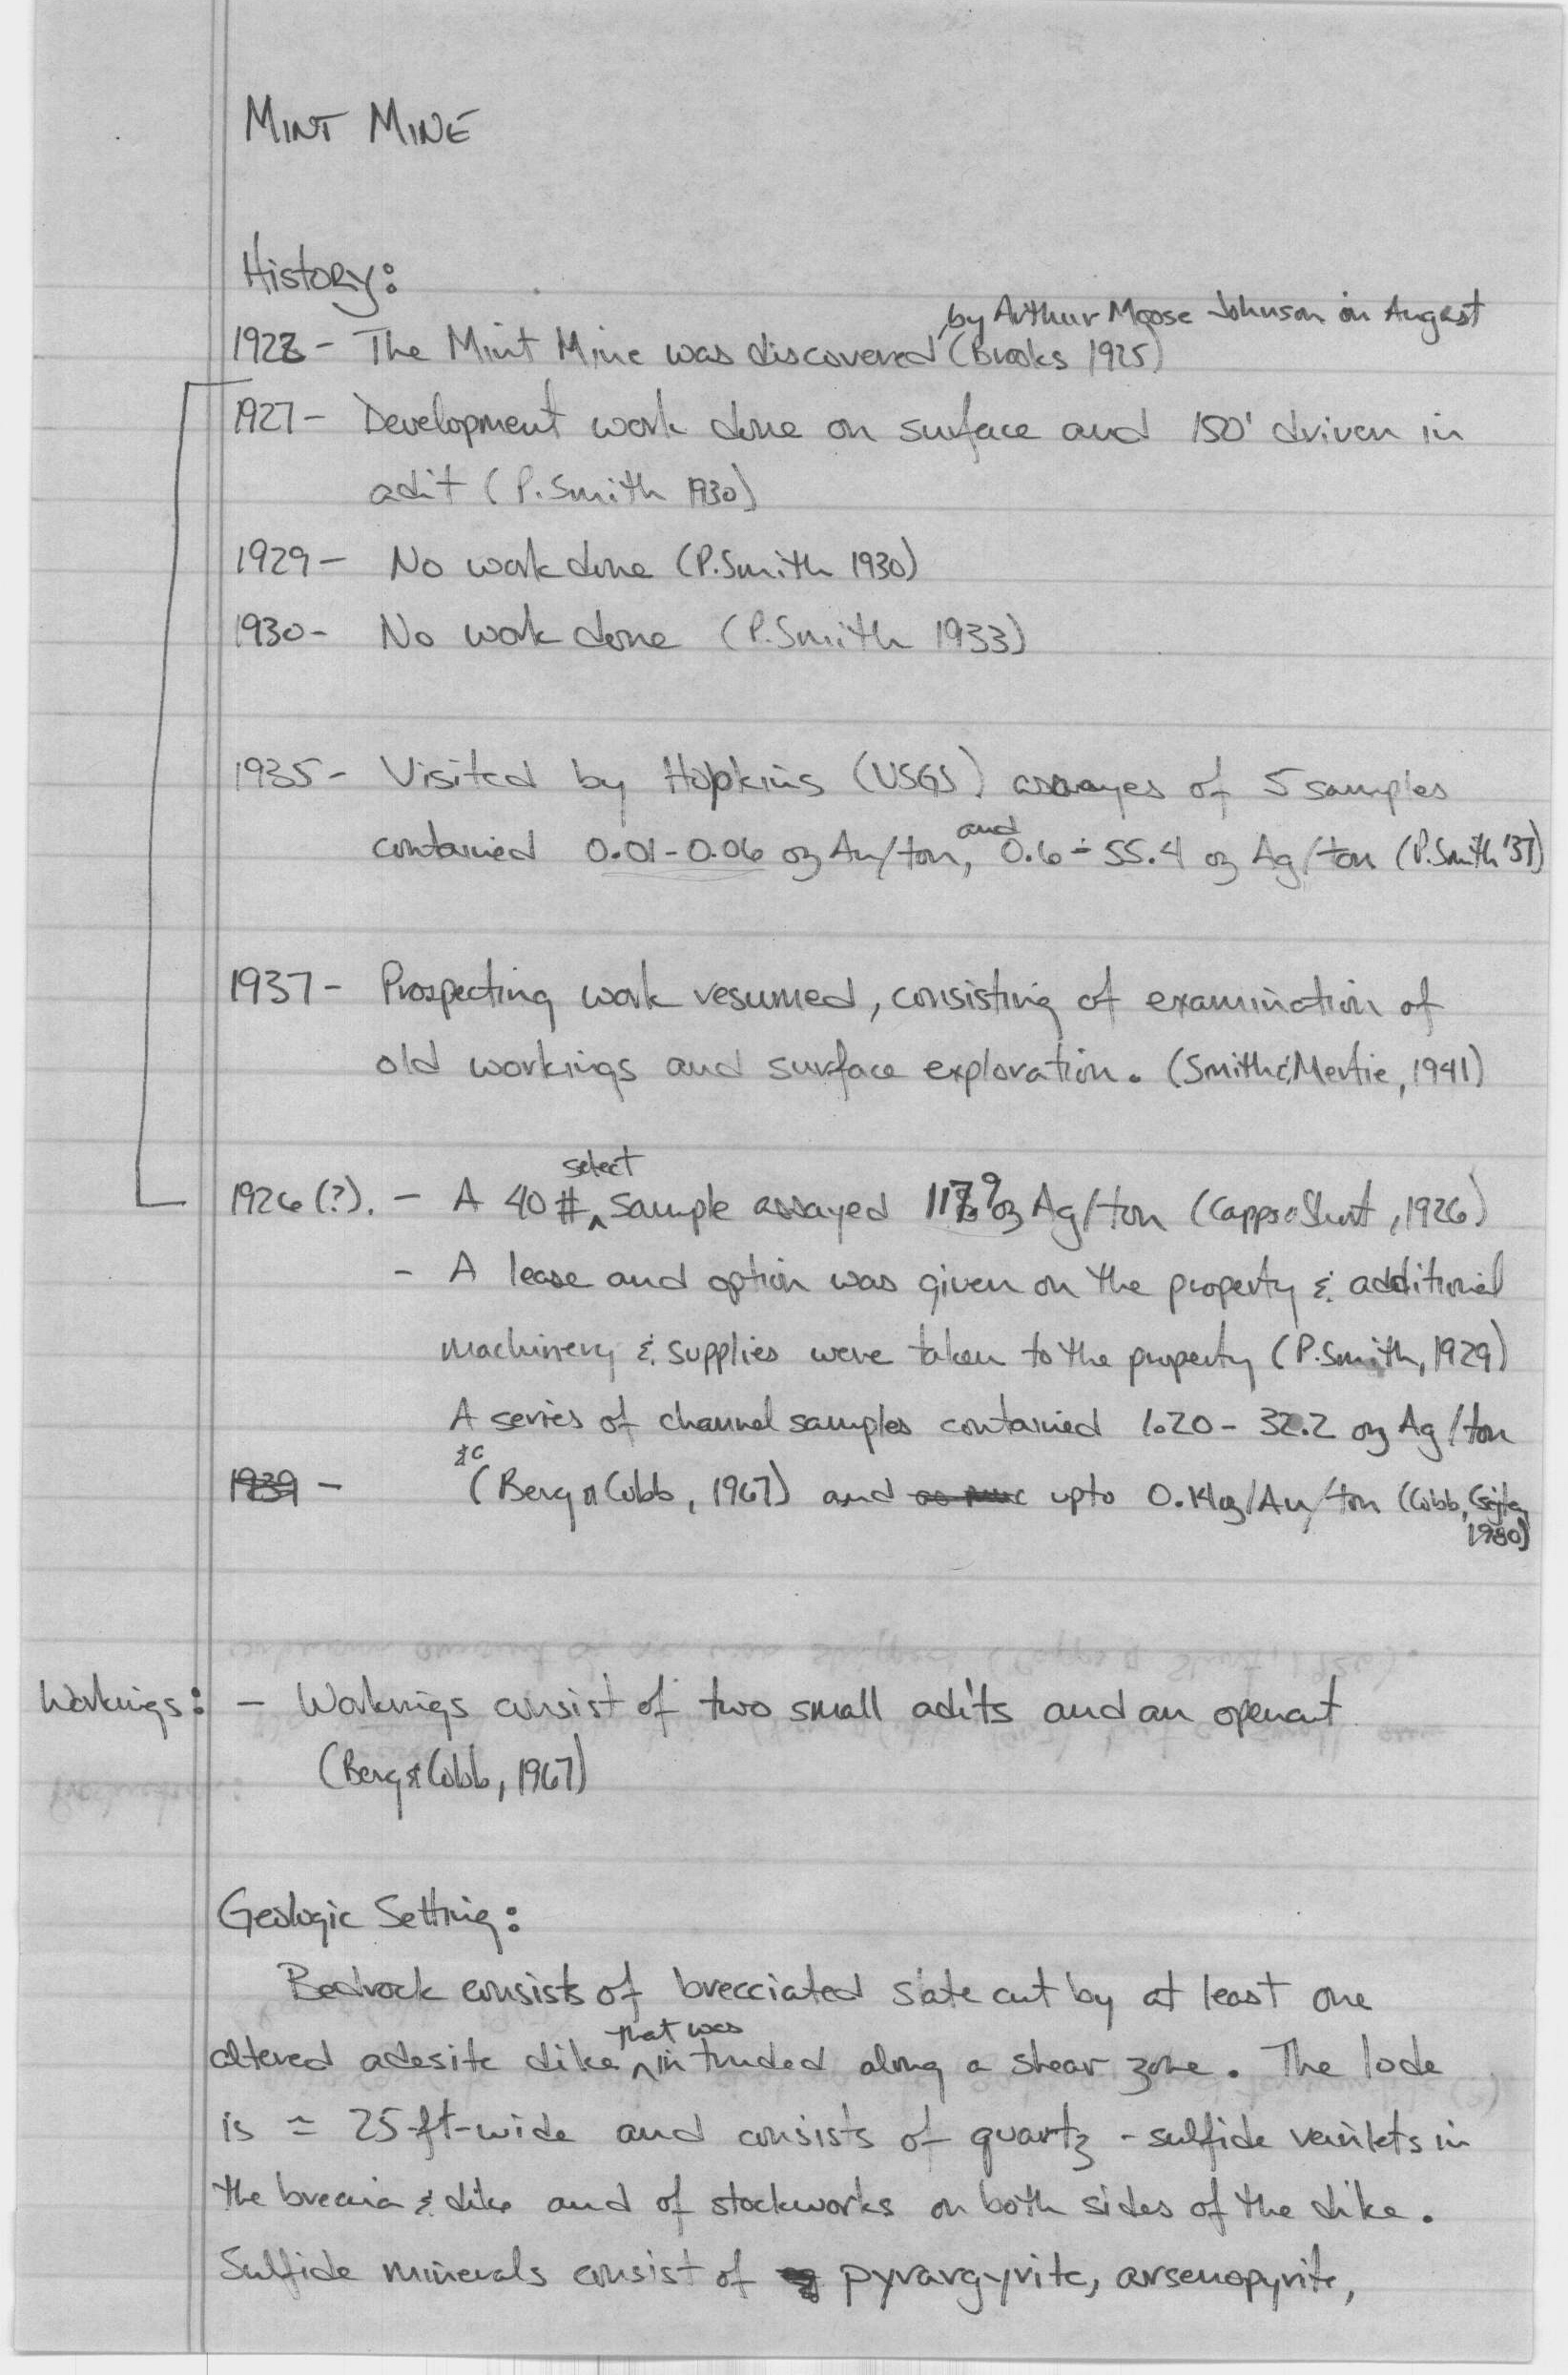 MINT MINE
History:
by Arthur Moose Johnson in Augest
192 - The Mint Mine was discovered (Brooks 1925)
1927 - Development work done on surface and 150' driven in
adit (P. Smith 1930)
1929 - No work done (P. Smith 1930)
1930 - No work done (P. Smith 1933)
1935 - Visited by Hopkins (USGS) assayes of 5 samples
contained 0.01-0.06 oz Au/ton, and 0.6 - 55.4 oz Ag/ton (P. Smith '37)
1937 - Prospecting work resumed, consisting of examination of
old workings and surface exploration. (Smith & Mertie, 1941)
1926 (?). - A 40 # select sample assayed oz Ag/ton (Capps & Short, 1926)
- A lease and option was given on the property & additional
machinery & supplies were taken to the property (P. Smith, 1929)
A series of channel samples contained 1.20 - 32.2 oz Ag/ton
1939 - (Berg & Cobb, 1967) and up to 0.14 oz/Au/ton (Cobb,
1980)
Workings: - Workings consist of two small adits and an opencut
(Berg & Cobb, 1967)
Geologic Setting:
Bedrock consists of brecciated slate cut by at least one
altered adesite dike that was intruded along a shear zone. The lode
is ≃ 25-ft-wide and consists of quartz - sulfide veinlets in
the breccia & dike and of stockworks on both sides of the dike.
Sulfide minerals consist of pyrargyrite, arsenopyrite,